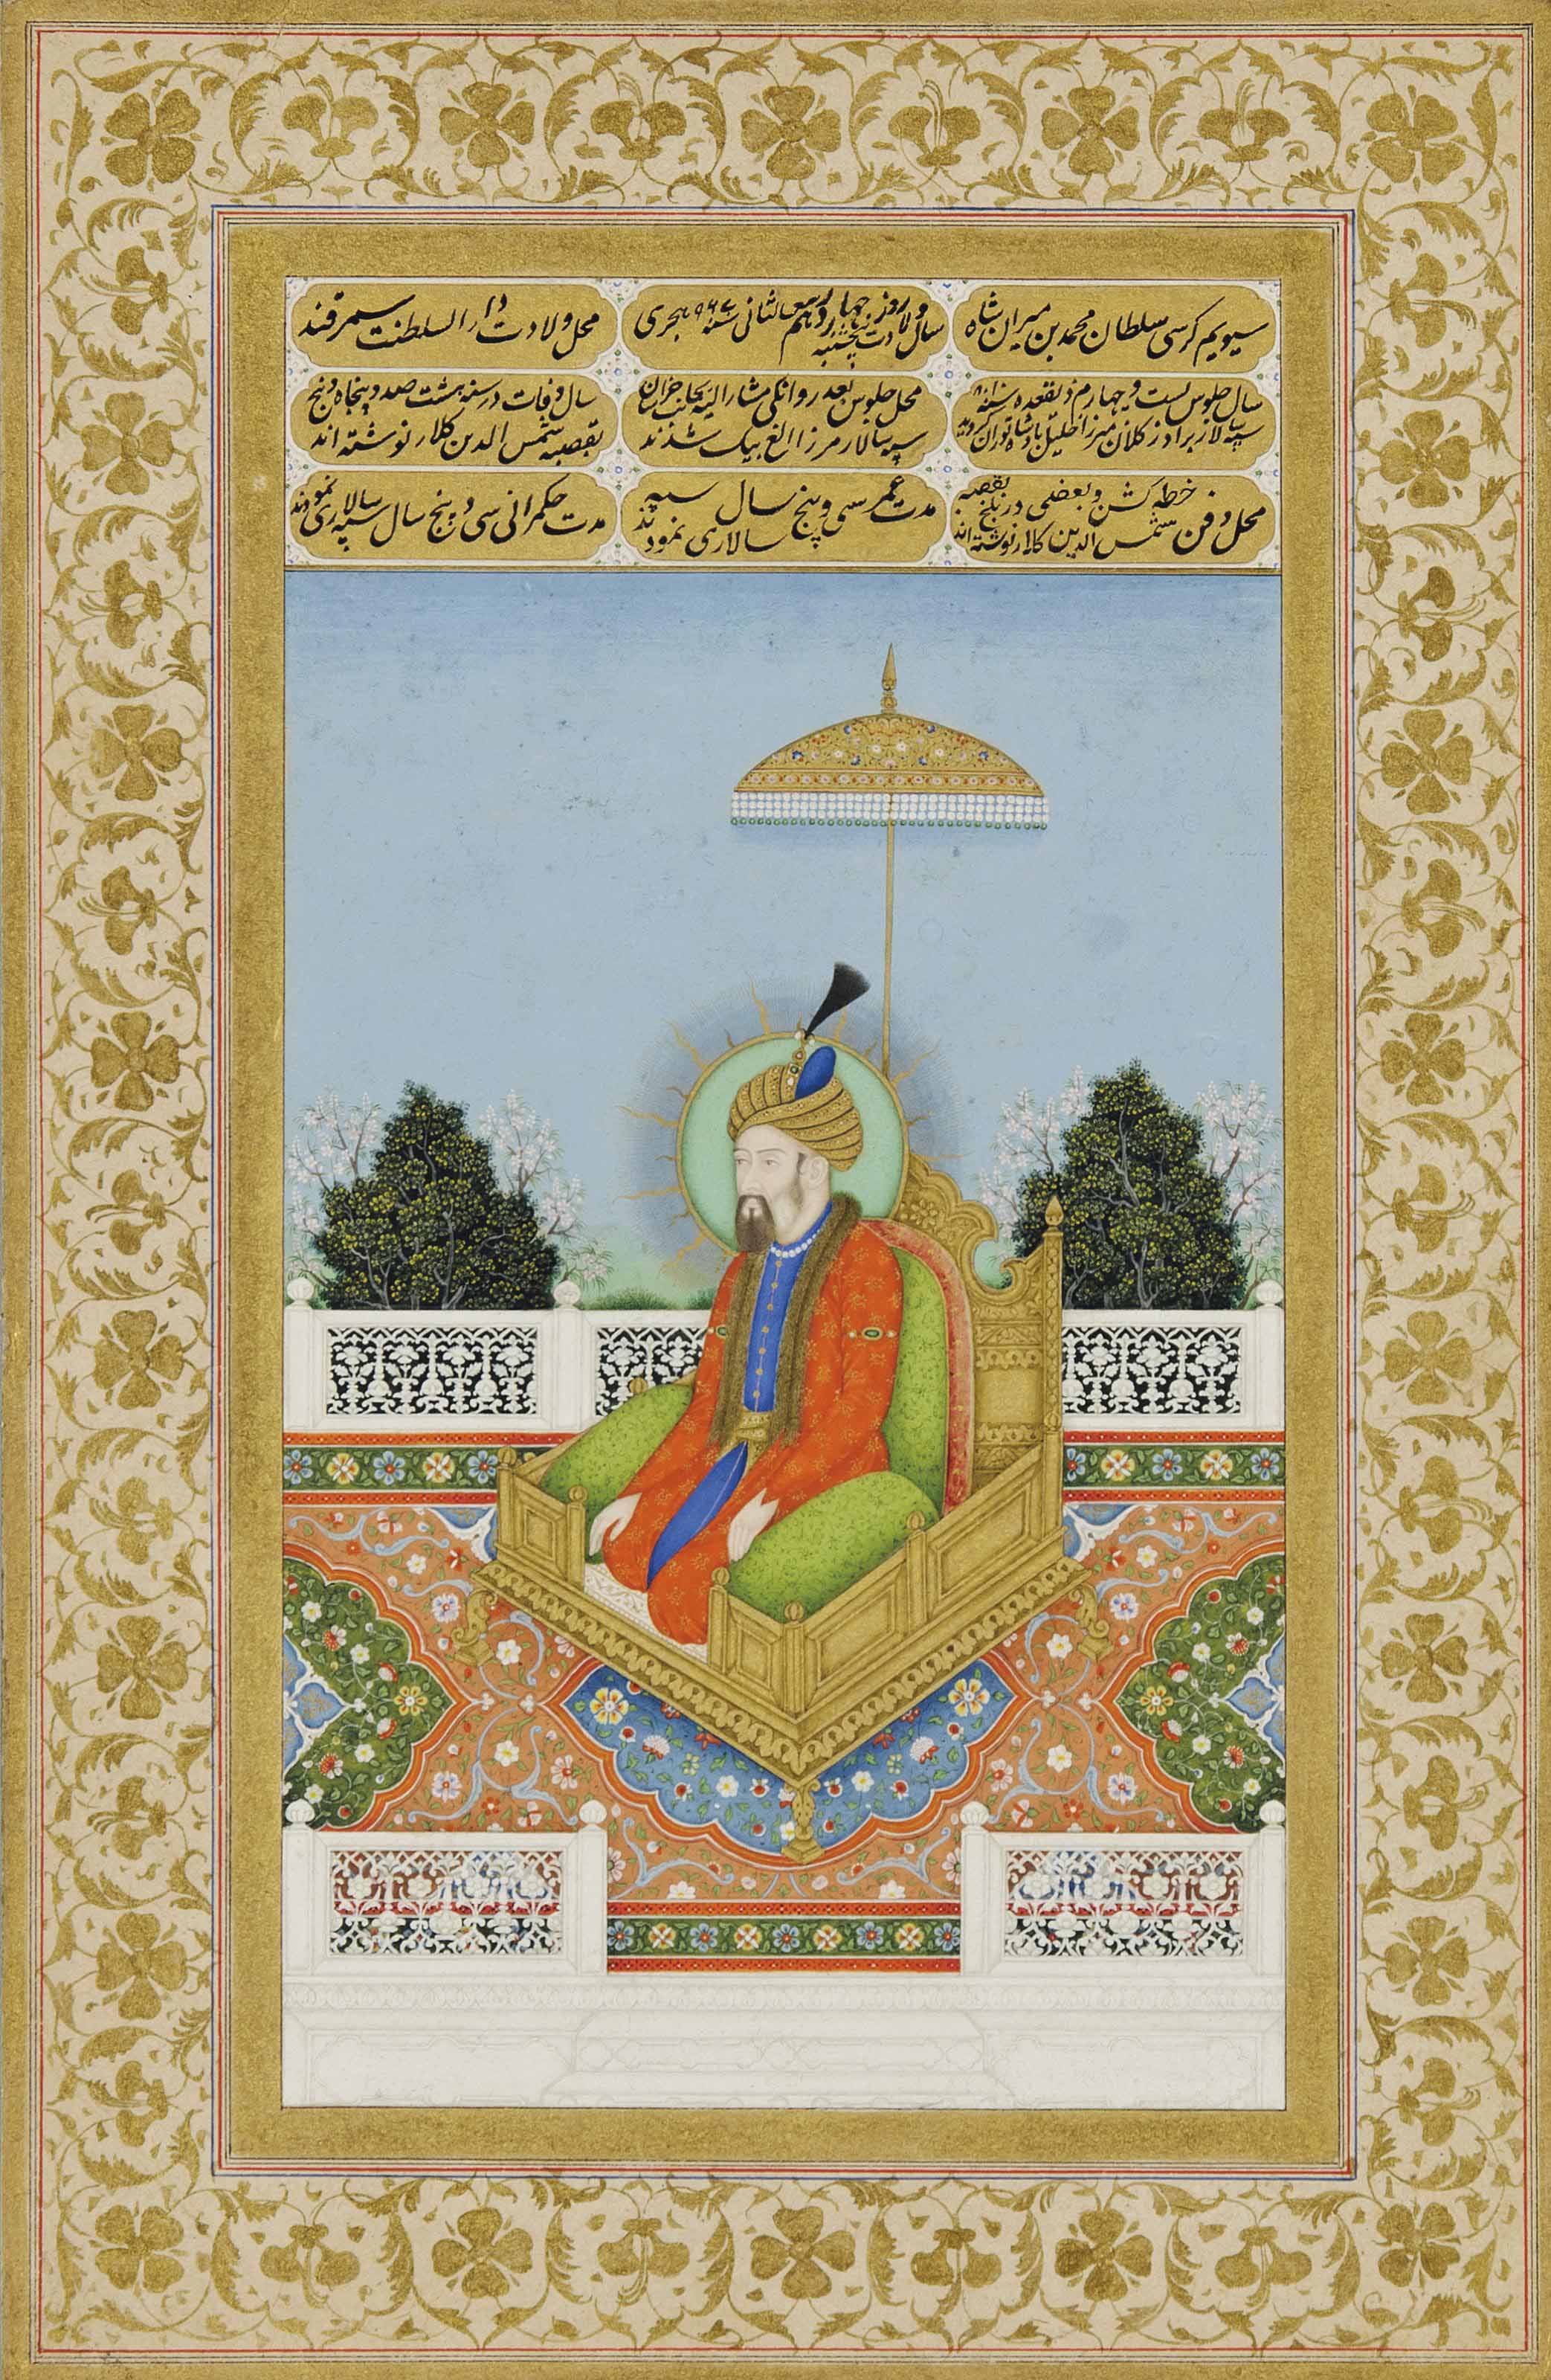 سیویم کرسی سلطان محمد بن میران شاه
سال ولادت روز پنجشنبه چهاردهم ربیع الثانی سنه هجری
محل ولادت دار السلطنت سمرقند
سال جلوس بست و چهارم ذیقعده سنه
سپه سالار برادر کلان میرزا خلیل پادشاه توران گردید
محل جلوس بعد روانگی مشار الیه بجانب خراسان
سپه سالار مرزا الغ بیک شدند
سال وفات در سنه هشت صد و پنجاه و پنج
بقصبه شمس الدین کلار نوشته اند
محل دفن خطه کش و بعضی در بلخ بقصبه
شمس الدین کلار نوشته اند
مدت عمر سی و پنج سال سپه
سالاری نمودند
مدت حکمرانی سی و پنج سال سپه سالاری نمودند